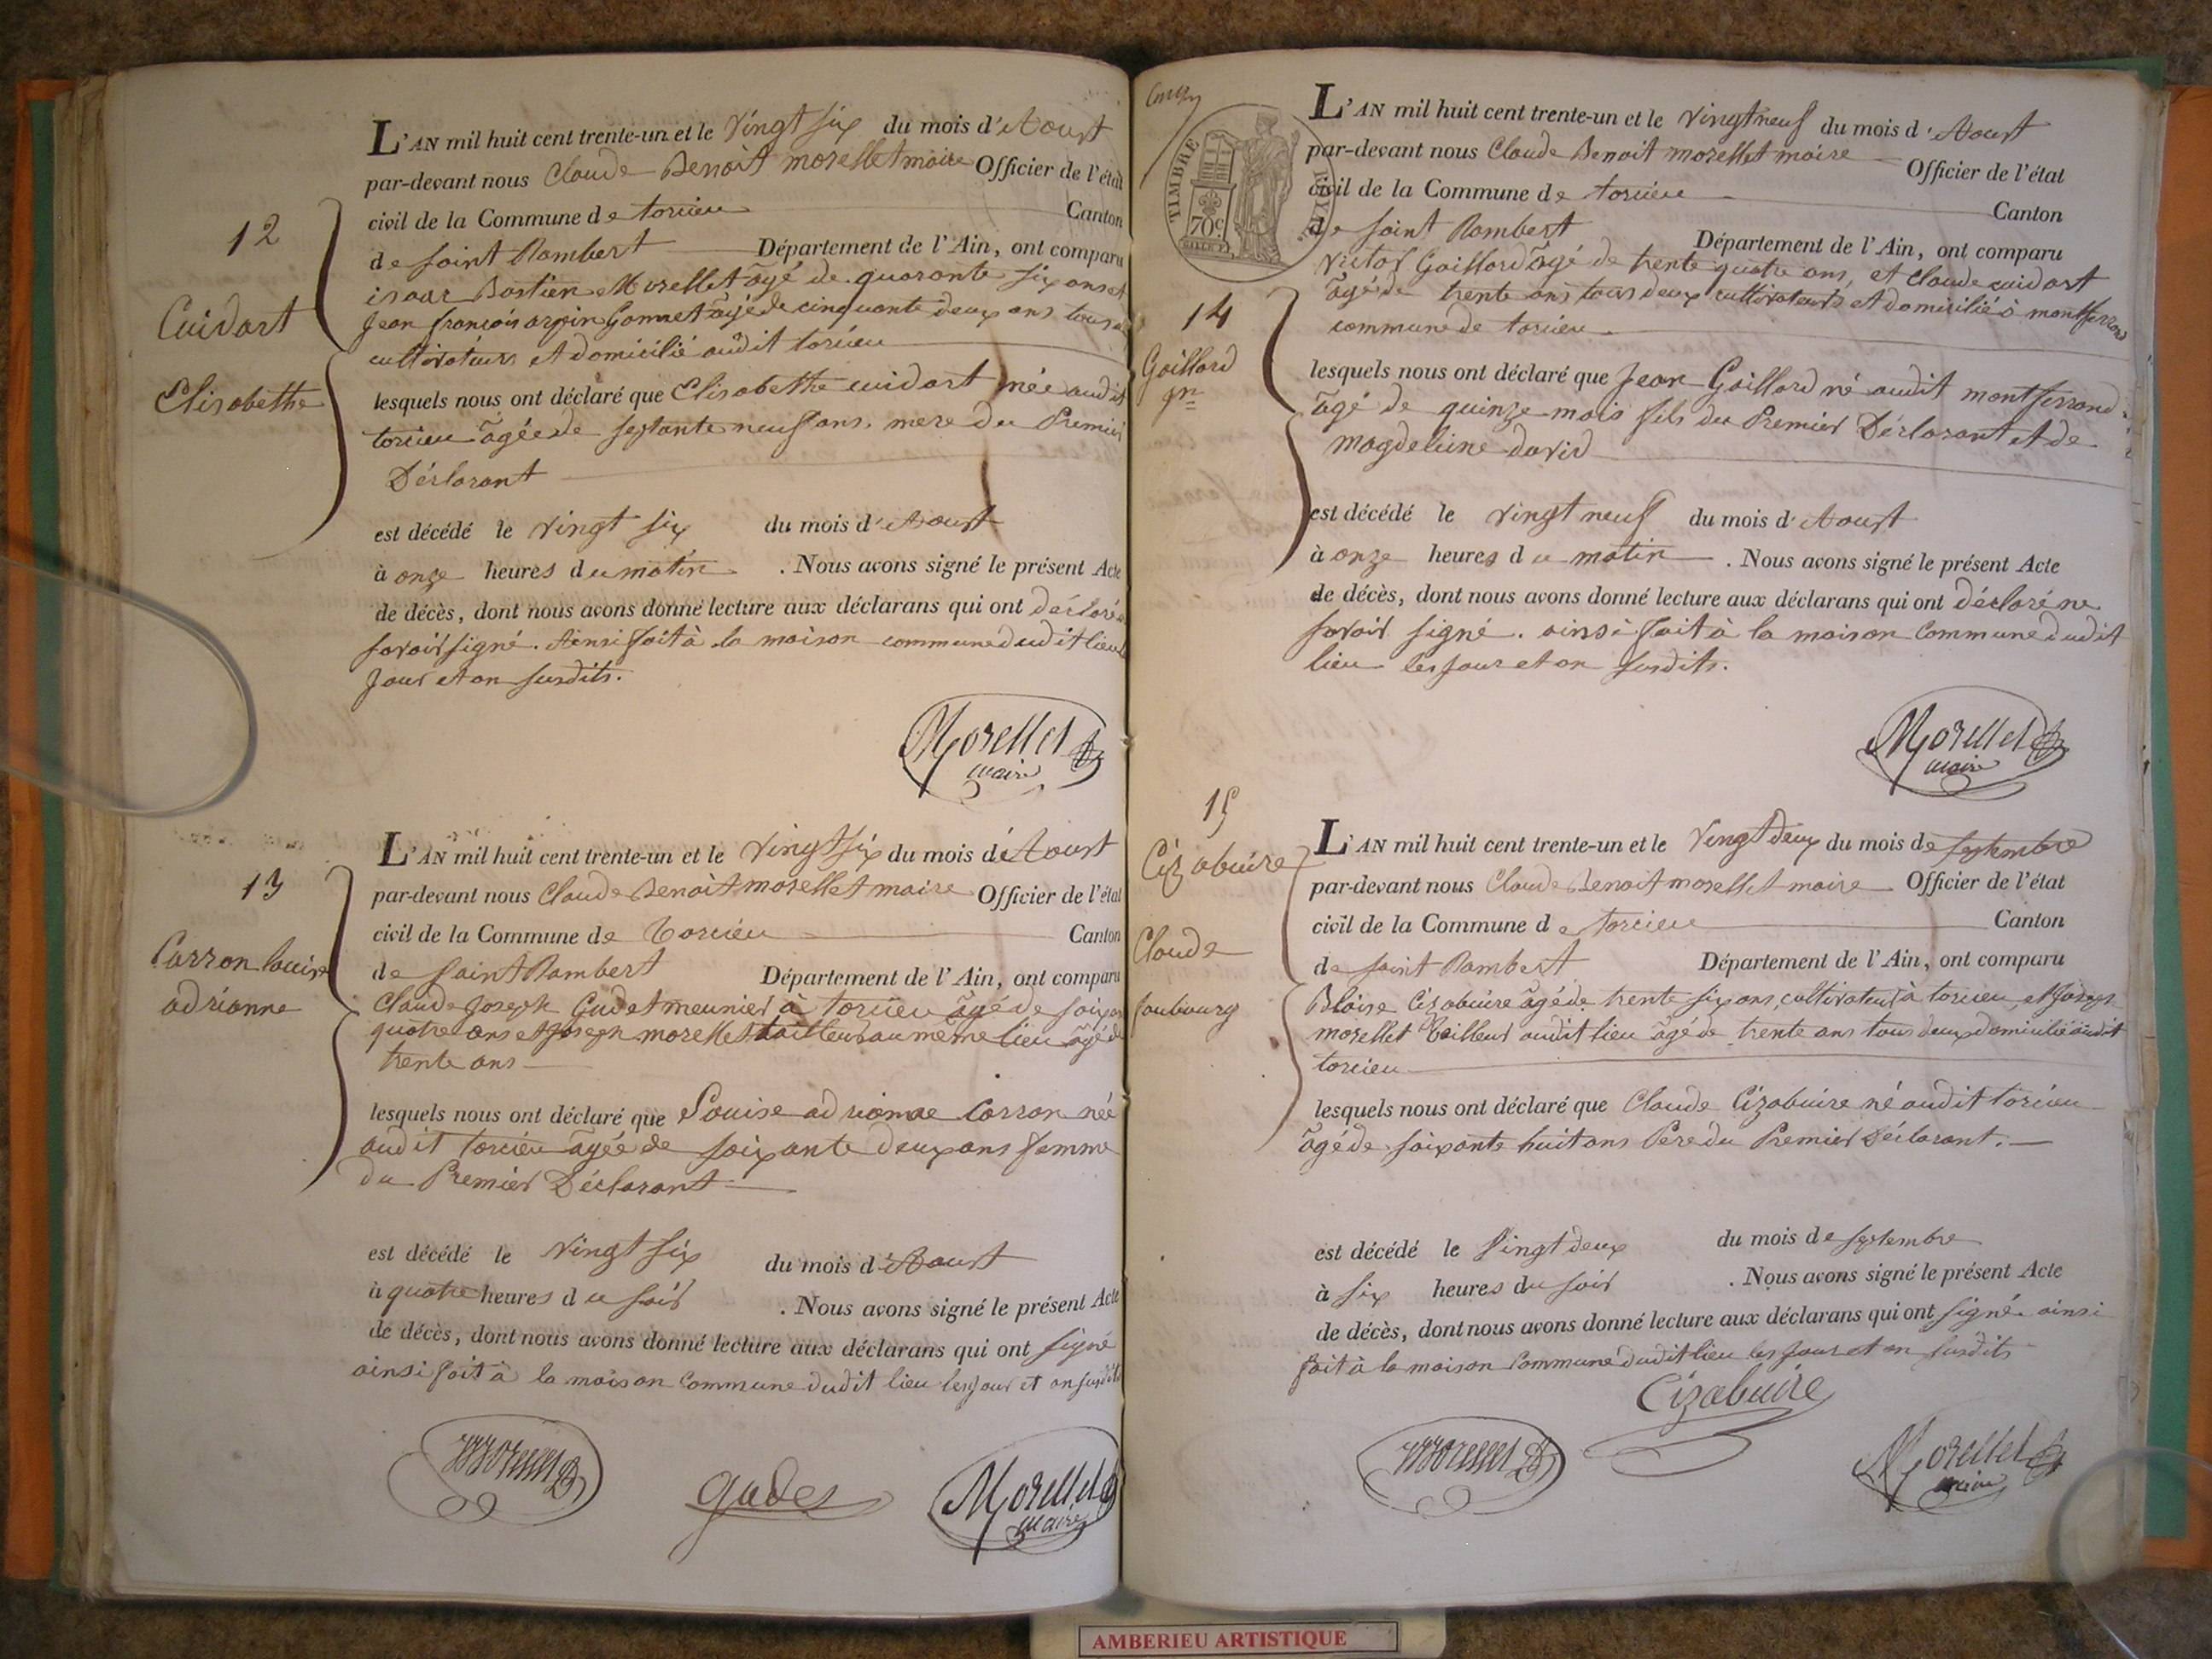 12
Cuidart
Elisabethe
L'AN mil huit cent trente-un et le vingt six du mois d'Aoust
par-devant nous Claude Benoit morellet maire Officier de l'état
civil de la Commune de torcieu Canton
de saint Rambert Département de l'Ain, ont comparu
isaac Bastien Morellet âgé de quarante six ans et
Jean françois arpin Gonnet âgé de cinquante deux ans tous
cultivateurs et domicilié audit torcieu
lesquels nous ont déclaré que Elisabethe cuidart née audit
torcieu âgée de septante neuf ans. mere du Premier
Déclarant
est décédé le vingt six du mois d'Aoust
à onze heures du matin . Nous avons signé le présent Acte
de décès, dont nous avons donné lecture aux déclarans qui ont déclaré
savoir signé. Ainsi fait à la maison commune dudit lieu
Jour et an susdits.
Morellet
maire
13
Carron louise
adrianne
L'AN mil huit cent trente-un et le vingt six du mois d'Aoust
par-devant nous Claude Benoit morellet maire Officier de l'état
civil de la Commune de Torcieu Canton
de Saint Rambert Département de l'Ain, ont comparu
Claude Joseph Gudet meunier à torcieu âgé de
quatre ans et Joseph morellet tailleur au même lieu âgé de
trente ans
lesquels nous ont déclaré que Louise adrianne Carron née
audit torcieu âgée de soixante deux ans femme
du Premier Déclarant
est décédé le vingt six du mois d'Aoust
à quatre heures du soir . Nous avons signé le présent Acte
de décès, dont nous avons donné lecture aux déclarans qui ont signé
ainsi fait à la maison commune dudit lieu les jour et an susdits
Morellet
gudet
Morellet
maire
TIMBRE ROYAL
70c
14
Gaillard
jn
L'AN mil huit cent trente-un et le vingt neuf du mois d'Aoust
par-devant nous Claude Benoit morellet maire Officier de l'état
civil de la Commune de torcieu Canton
de saint Rambert Département de l'Ain, ont comparu
Victor Gaillard âgé de trente quatre ans, et Claude cuidart
âgé de trente ans tous deux cultivateurs et domicilié à montferrand
commune de torcieu
lesquels nous ont déclaré que Jean Gaillard né audit montferrand
âgé de quinze mois fils du Premier Déclarant et de
magdeleine david
est décédé le vingt neuf du mois d'Aoust
à onze heures du matin . Nous avons signé le présent Acte
de décès, dont nous avons donné lecture aux déclarans qui ont déclaré ne
savoir signé. ainsi fait à la maison commune dudit
lieu les jour et an susdits.
Morellet
maire
15
Cizabuire
Claude
faubourg
L'AN mil huit cent trente-un et le vingt deux du mois de septembre
par-devant nous Claude Benoit morellet maire Officier de l'état
civil de la Commune de torcieu Canton
de saint Rambert Département de l'Ain, ont comparu
Blaise Cizabuire âgé de trente six ans, cultivateur à torcieu, et Joseph
morellet Tailleur audit lieu âgé de trente ans tous deux domicilié audit
torcieu
lesquels nous ont déclaré que Claude Cizabuire né audit torcieu
âgé de soixante huit ans Pere du Premier Déclarant.
est décédé le vingt deux du mois de septembre
à six heures du soir . Nous avons signé le présent Acte
de décès, dont nous avons donné lecture aux déclarans qui ont signé. ainsi
fait à la maison commune dudit lieu les jour et an susdits
Cizabuire
Morellet
Morellet
maire
AMBERIEU ARTISTIQUE